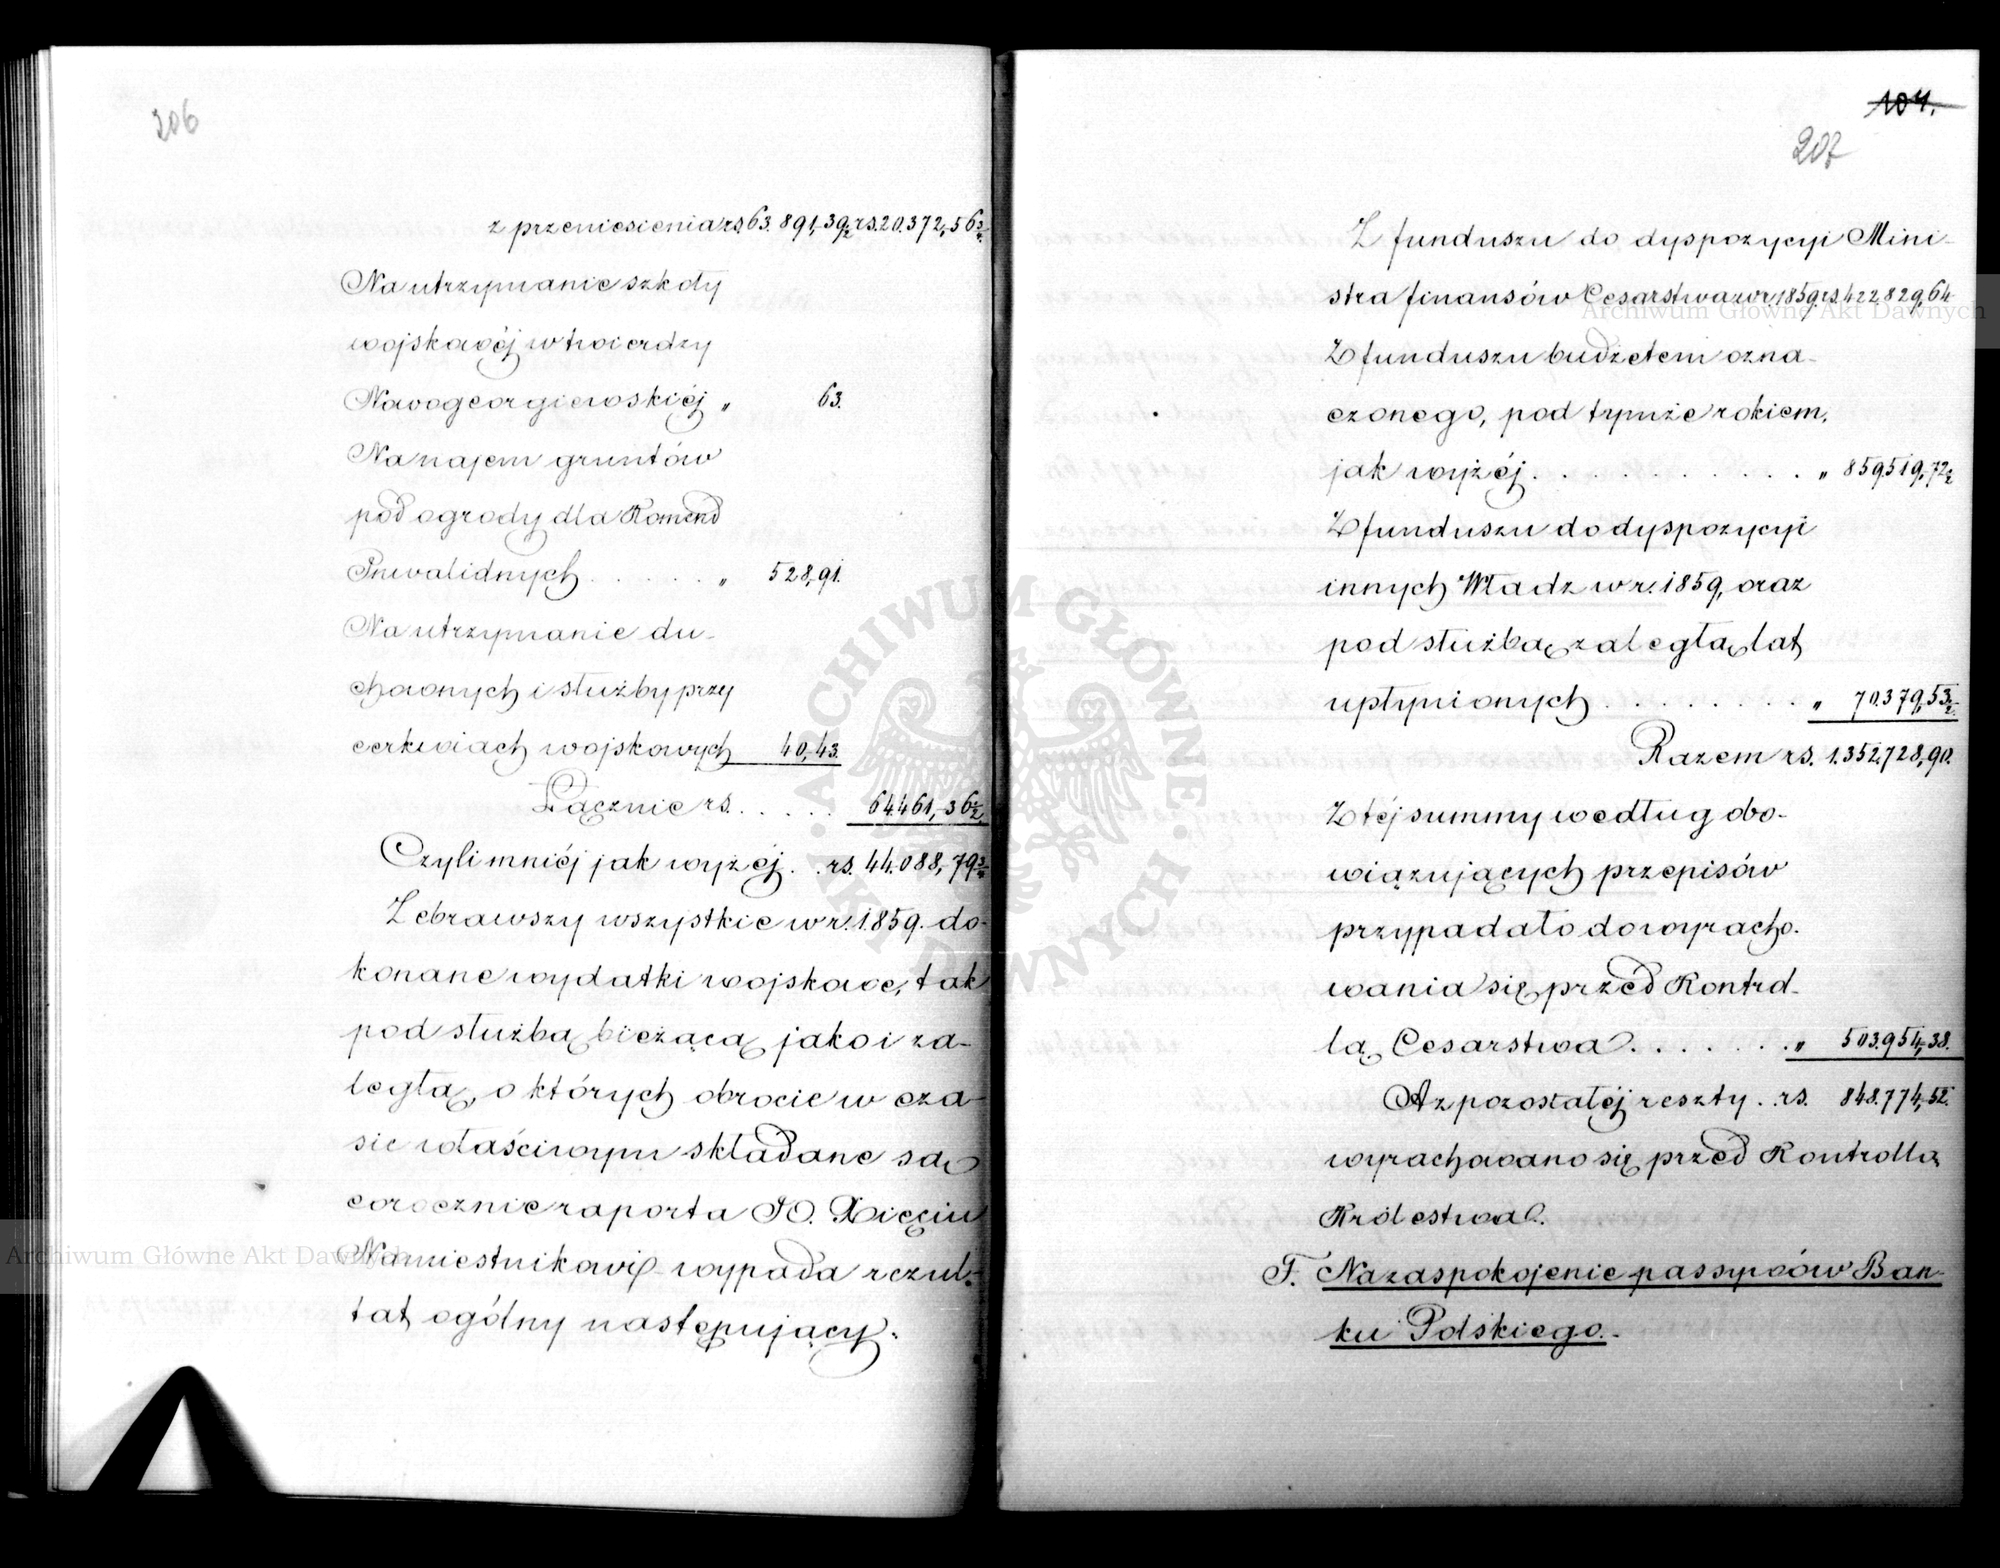 206
z przeniesienia rs. 63.891,39½ rs. 20.372,56¾
Na utrzymanie szkoły
wojskowéj w twierdzy
Nowogeorgiewskiéj „ 63.
Na najem gruntów
pod ogrody dla Komend
Inwalidnych . . . . . „ 528,91.
Na utrzymanie du-
chownych i służby przy
cerkwiach wojskowych 40,43.
Łącznie rs. . . . . . 64.461,36½
Czyli mniéj jak wyżéj . . rs. 44.088,79¾
Zebrawszy wszystkie w r. 1859. do-
konane wydatki wojskowe, tak
pod służbą bieżącą jako i za-
ległą, o których obrocie w cza-
sie właściwym składane są
corocznie raporta JO. Xięciu
Namiestnikowi wypada rezul-
tat ogólny następujący:
104.
207
Z funduszu do dyspozycyi Mini-
stra finansów Cesarstwa w r. 1859. rs. 422.829,64
Z funduszu budżetem ozna-
czonego, pod tymże rokiem,
jak wyżéj . . . . . . . . . . „ 859.519,72½
Z funduszu do dyspozycyi
innych Władz w r. 1859, oraz
pod służbą zaległą lat
upłynionych . . . . . . . . „ 70.379,53½
Razem rs. 1.352.728,90.
Z téj summy według obo-
wiązujących przepisów
przypadało do wyracho-
wania się przed Kontrol-
lą Cesarstwa . . . . . . . „ 503.954,38.
A z pozostałéj reszty . . rs. 848.774,52.
wyrachowano się przed Kontrollą
Królestwa.
F. Na zaspokojenie passywów Ban-
ku Polskiego.
Archiwum Główne Akt Dawnych
Archiwum Główne Akt Dawnych
ARCHIWUM GŁÓWNE AKT DAWNYCH